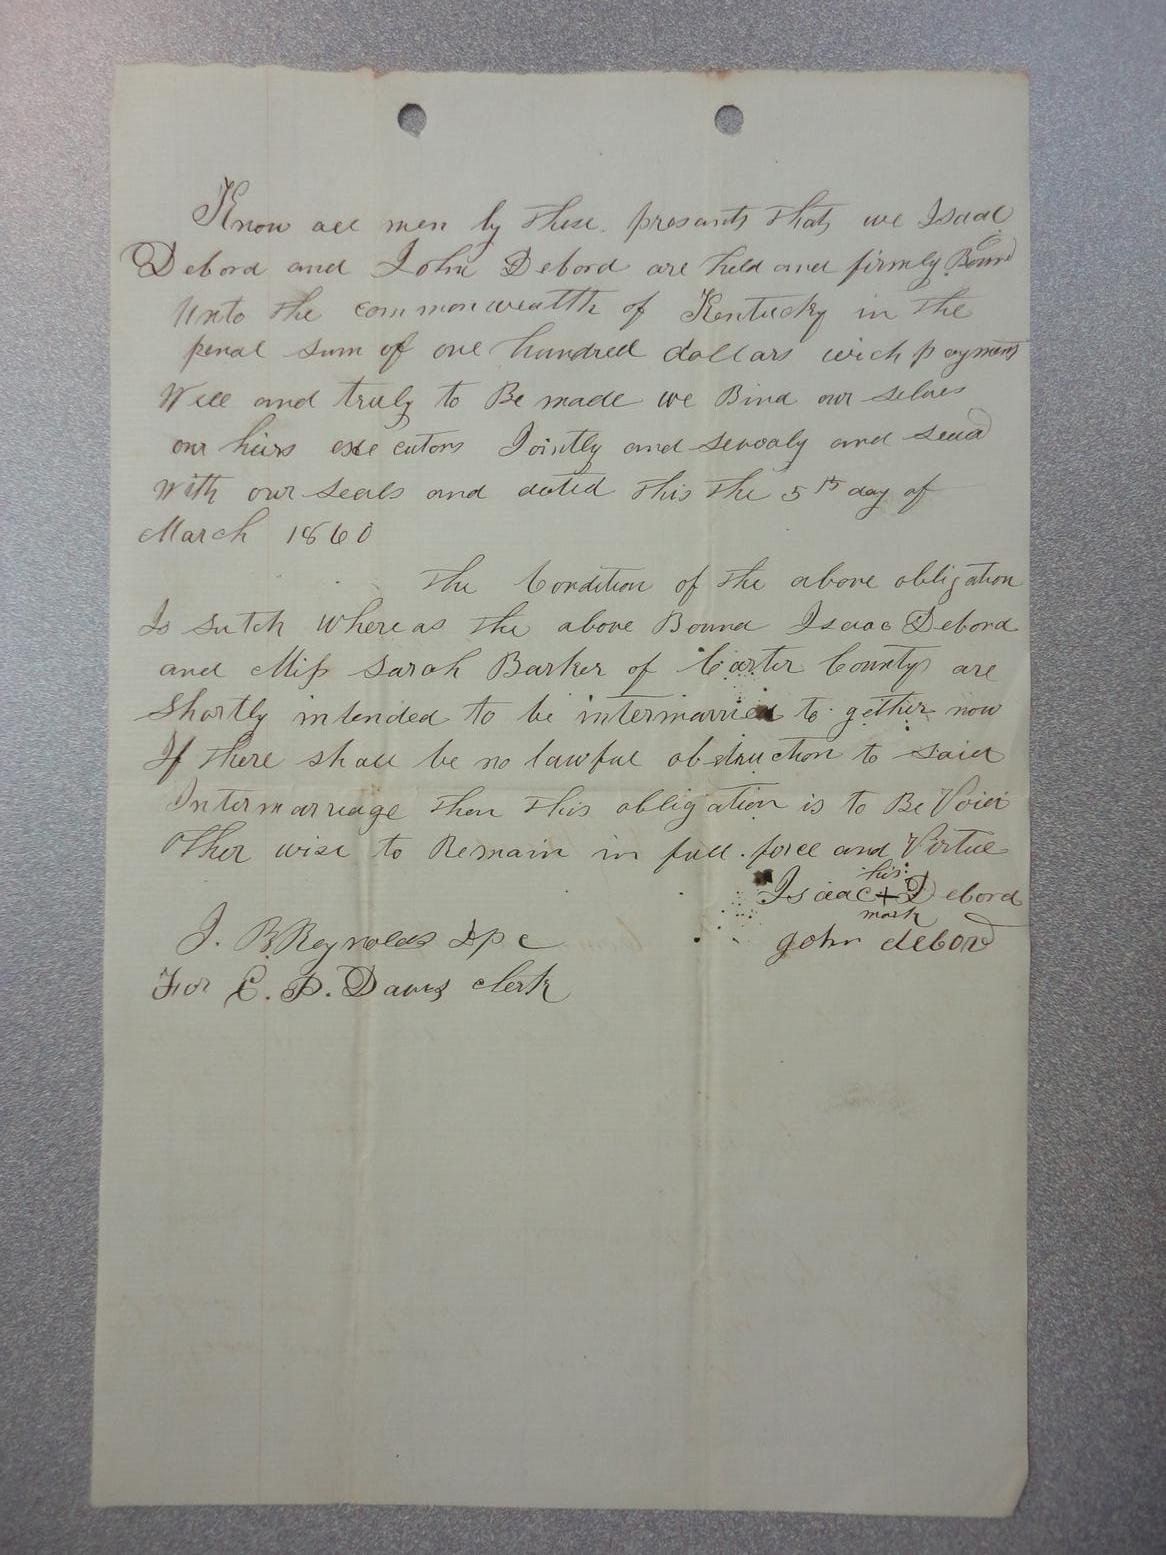 Know all men by these presants that we Isaac
Debord and John Debord are held and firmly Bound
Unto the commonwealth of Kentucky in the
penal sum of one hundred dollars wich payment
Well and truly to Be made we Bind our selves
our heirs executors Jointly and sevealy and seald
With our seals and dated this the 5th day of
March 1860
The Condition of the above obligation
Is sutch Where as the above Bound Isaac Debord
and Miss Sarah Barker of Carter County are
Shortly intended to be intermarried to gether now
If there shall be no lawful obstruction to said
Intermarriage then this obligation is to Be Void
Other wise to Remain in full force and Virtue
his
Isaac + Debord
mark
John debord
J. B Reynolds Dpc
For C. P. Davis clerk